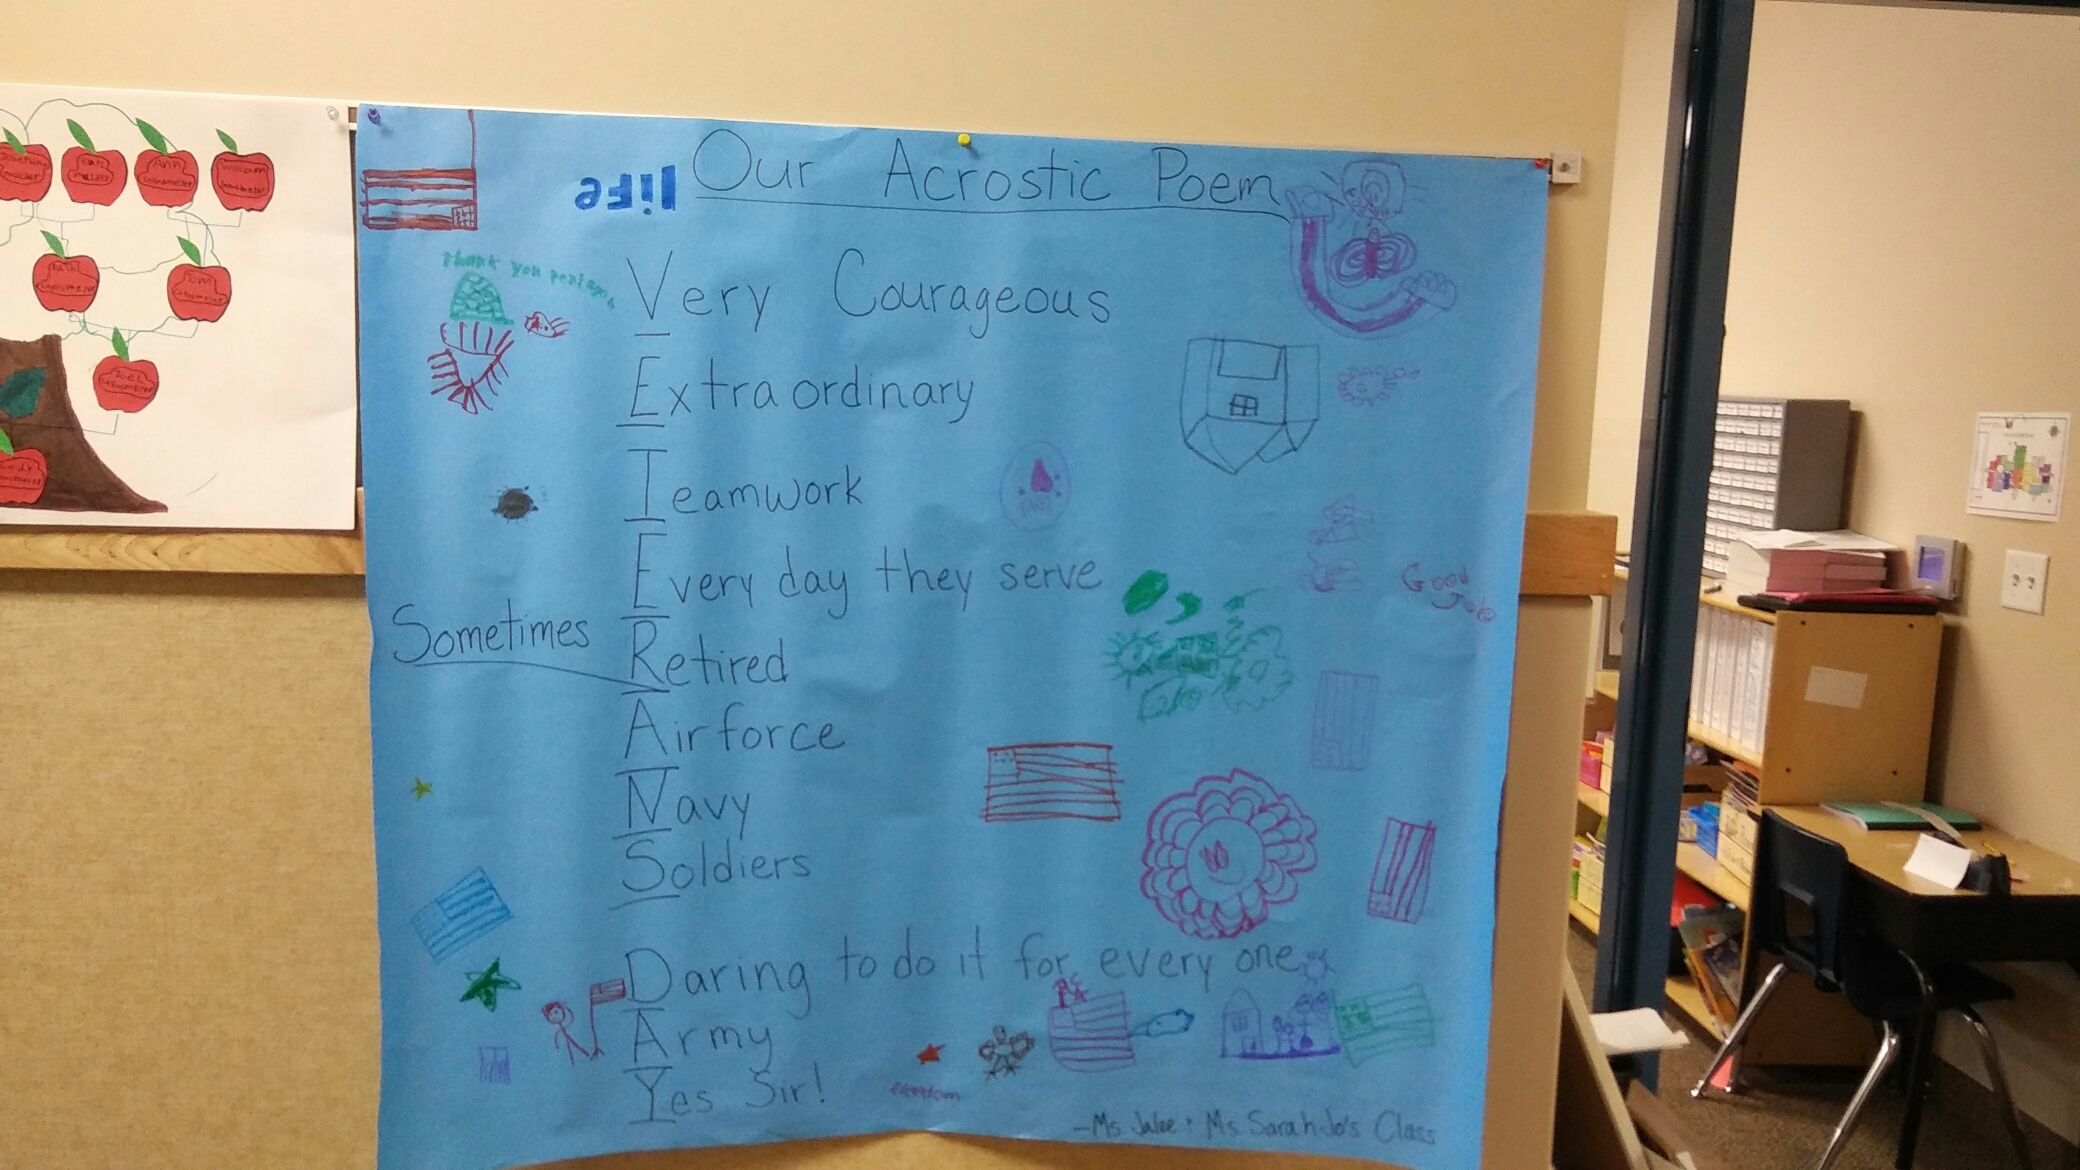 life
Our Acrostic Poem
Thank you
Very Courageous
Extraordinary
Teamwork
Every day they serve
Good Job
Sometimes
Retired
Airforce
Navy
Soldiers
Daring to do it for every one
Army
Yes Sir!
freedom
-Ms Jalee + Ms SarahJo's Class